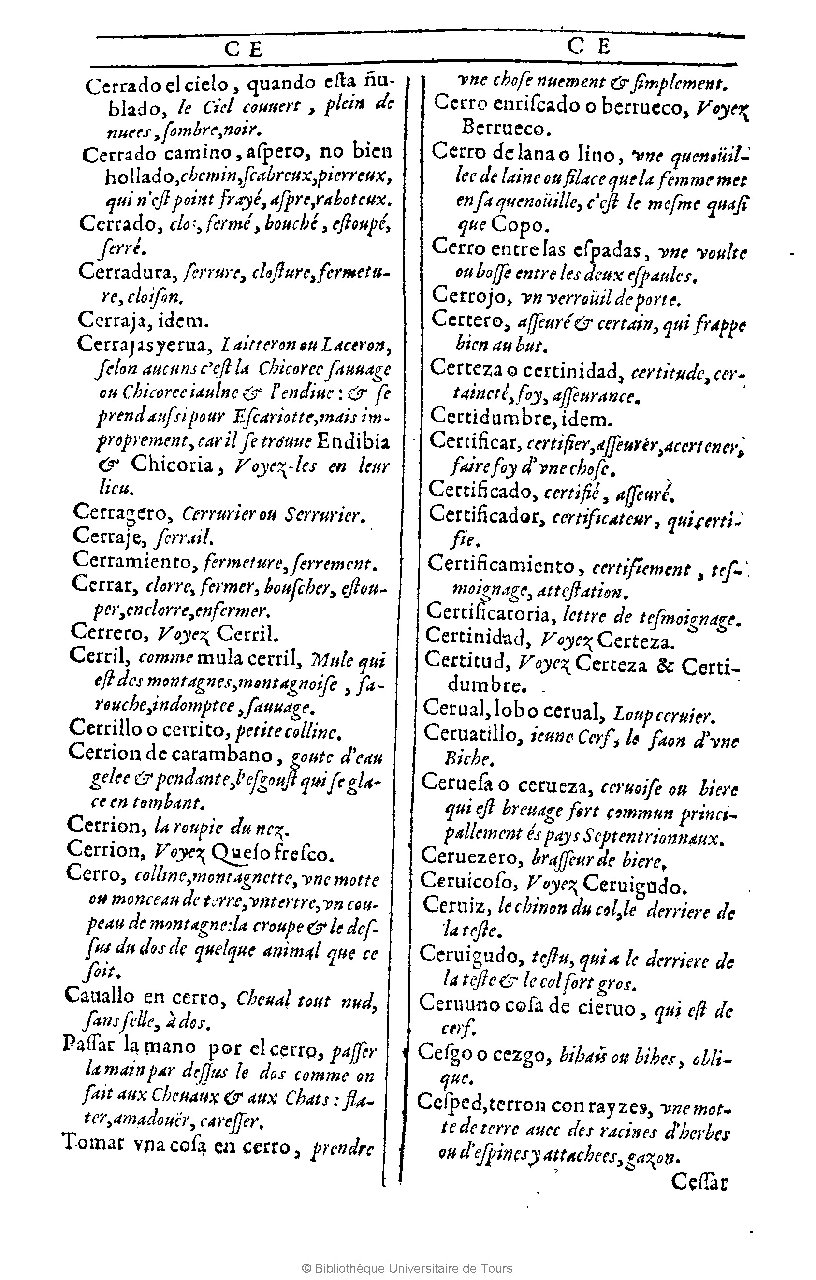 C E
Cerrado el cielo, quando eſta ñu-
blado, le Ciel couuert, plein de
nuees, ſombre, noir.
Cerrado camino, aſpero, no bien
hollado, chemin, ſcabreux, pierreux,
qui n'eſt point frayé, aſpre, raboteux.
Cerrado, clos, fermé, bouché, eſtoupé,
ſerré.
Cerradura, ſerrure, cloſture, fermetu-
re, cloiſon.
Cerraja, idem.
Cerrajas yerua, Laitteron ou Laceron,
ſelon aucuns c'eſt la Chicoree ſauuage
ou Chicoree iaulne & l'endiue: & ſe
prend auſsi pour Eſcariotte, mais im-
proprement, car il ſe trouue Endibia
& Chicoria, Voyez-les en leur
lieu.
Cerragero, Cerrurier ou Serrurier.
Cerraje, ſerrail.
Cerramiento, fermeture, ferrement.
Cerrar, clorre, fermer, bouſcher, eſtou-
per, enclorre, enfermer.
Cerrero, Voyez Cerril.
Cerril, comme mula cerril, Mule qui
eſt des montagnes, montagnoiſe, fa-
rouche, indomptee, ſauuage.
Cerrillo o cerrito, petite colline.
Cerrion de carambano, goute d'eau
gelee & pendante, l'eſgouſt qui ſe gla-
ce en tombant.
Cerrion, la roupie du nez.
Cerrion, Voyez Queſo freſco.
Cerro, colline, montagnette, vne motte
ou monceau de terre, vn tertre, vn cou-
peau de montagne: la croupe & le deſ-
ſus du dos de quelque animal que ce
ſoit.
Cauallo en cerro, Cheual tout nud,
ſans ſelle, à dos.
Paſſar la mano por el cerro, paſſer
la main par deſſus le dos comme on
fait aux Cheuaux & aux Chats: fla-
ter, amadouër, careſſer.
Tomar vna coſa en cerro, prendre
C E
vne choſe nuement & ſimplement.
Cerro enriſcado o berrueco, Voyez
Berrueco.
Cerro de lana o lino, vne quenoüil-
lee de laine ou filace que la femme met
en ſa quenoüille, c'eſt le meſme quaſi
que Copo.
Cerro entre las eſpadas, vne voulte
ou boſſe entre les deux eſpaules.
Cerrojo, vn verroüil de porte.
Certero, aſſeuré & certain, qui frappe
bien au but.
Certeza o certinidad, certitude, cer-
taineté, foy, aſſeurance.
Certidumbre, idem.
Certificar, certifier, aſſeurer, acertener,
faire foy d'vne choſe.
Certificado, certifié, aſſeuré.
Certificador, certificateur, qui certi-
fie.
Certificamiento, certifiement, teſ-
moignage, atteſtation.
Certificatoria, lettre de teſmoignage.
Certinidad, Voyez Certeza.
Certitud, Voyez Certeza & Certi-
dumbre.
Cerual, lobo cerual, Loup ceruier.
Ceruatillo, ieune Cerf, le faon d'vne
Biche.
Cerueſa o cerueza, ceruoiſe ou biere
qui eſt breuage fort commun princi-
pallement és pays Septentrionnaux.
Ceruezero, braſſeur de biere.
Ceruicoſo, Voyez Ceruigudo.
Ceruiz, le chinon du col, le derriere de
la teſte.
Ceruigudo, teſtu, qui a le derriere de
la teſte & le col fort gros.
Ceruuno coſa de cieruo, qui eſt de
cerf.
Ceſgo o cezgo, bihais ou bihes, obli-
que.
Ceſped, terron con rayzes, vne mot-
te de terre auec des racines d'herbes
ou d'eſpines y attachees, gazon.
Ceſſar
© Bibliothèque Universitaire de Tours